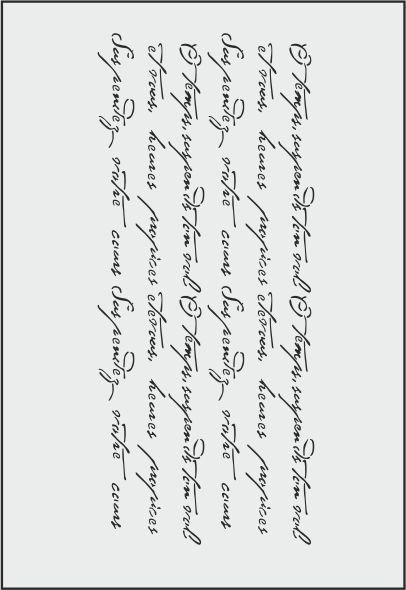 O temps, suspends ton vol O temps, suspends ton vol
et vous, heures propices et vous, heures propices
Suspendez votre cours Suspendez votre cours
O temps, suspends ton vol O temps, suspends ton vol
et vous, heures propices et vous, heures propices
Suspendez votre cours Suspendez votre cours